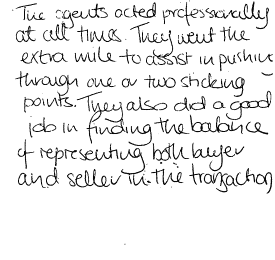 The agents acted professionally
at all times. They went the
extra mile to assist in pushing
through one or two sticking
points. They also did a good
job in finding the balance
of representing both buyer
and seller in the transaction